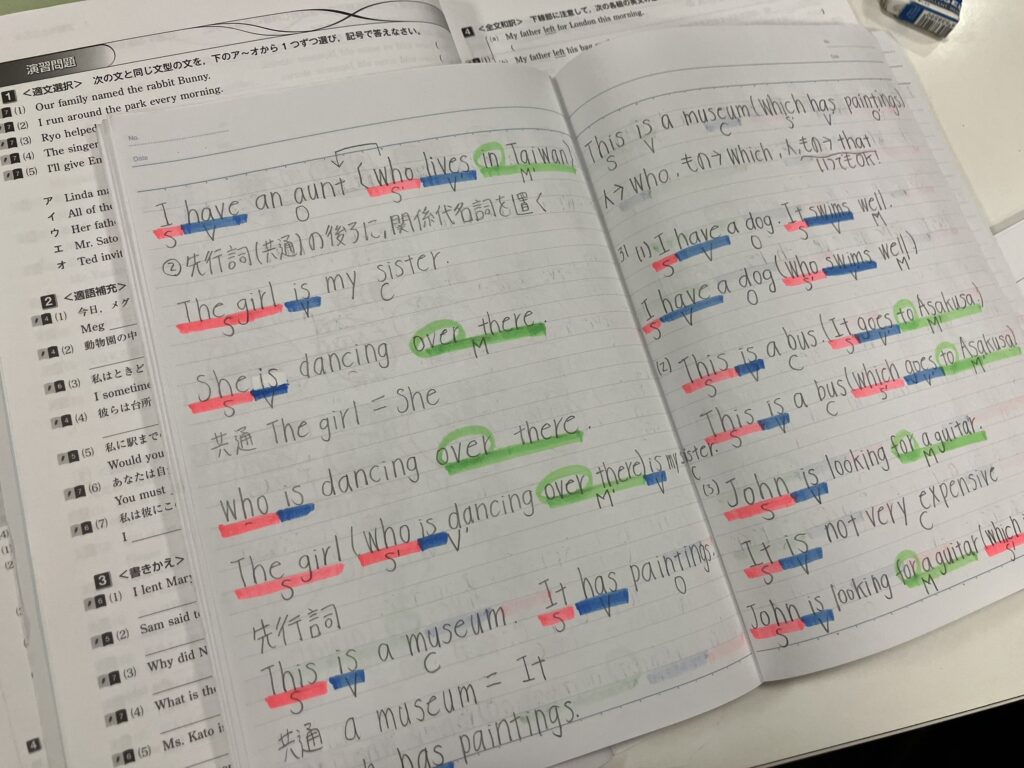 演習問題
1 <適文選択> 次の文と同じ文型の文を，下のア～オから1つずつ選び，記号で答えなさい。
(1) Our family named the rabbit Bunny.
(2) I run around the park every morning.
(3) Ryo helped
(4) The singer
(5) I'll give
ア Linda
イ All of the
ウ Her
エ Mr. Sato
オ Ted
2 <適語補充>
(1) 今日，メグ
Meg
(2) 動物園の中
(3) 私はときど
I sometimes
(4) 彼らは台所
(5) 私に駅まで
Would you
(6) あなたは自
You must
(7) 私は彼にこ
I
3 <書きかえ>
(1) I lent
(2) Sam said
(3) Why did
(4) What is
(5) Ms. Kato
4
4 <全文和訳> 下線部に注意して，次の各組の
(a) My father left for London this morning.
My father left his
No.
Date
I have an aunt (who lives in Taiwan)
S V O S' V' M'
②先行詞(共通)の後ろに，関係代名詞を置く
The girl is my sister.
S V C
She is dancing over there.
S V M
共通 The girl = She
who is dancing over there.
The girl (who is dancing over there) is my sister.
S S' V' M' V C
先行詞
This is a museum. It has paintings.
S V C S V O
共通 a museum = It
has paintings.
No.
Date
This is a museum (which has paintings)
S V C S' V' O'
人→who, もの→which, 人，もの→that
いつでもOK!
(1) I have a dog. It swims well.
S V O S V M
I have a dog (who swims well)
S V O S' V' M'
(2) This is a bus. (It goes to Asakusa.)
S V C S V M'
This is a bus (which goes to Asakusa)
S V C S' V' M'
(3) John is looking for a guitar.
S V M
It is not very expensive
S V C
John is looking for a guitar (which
S V M